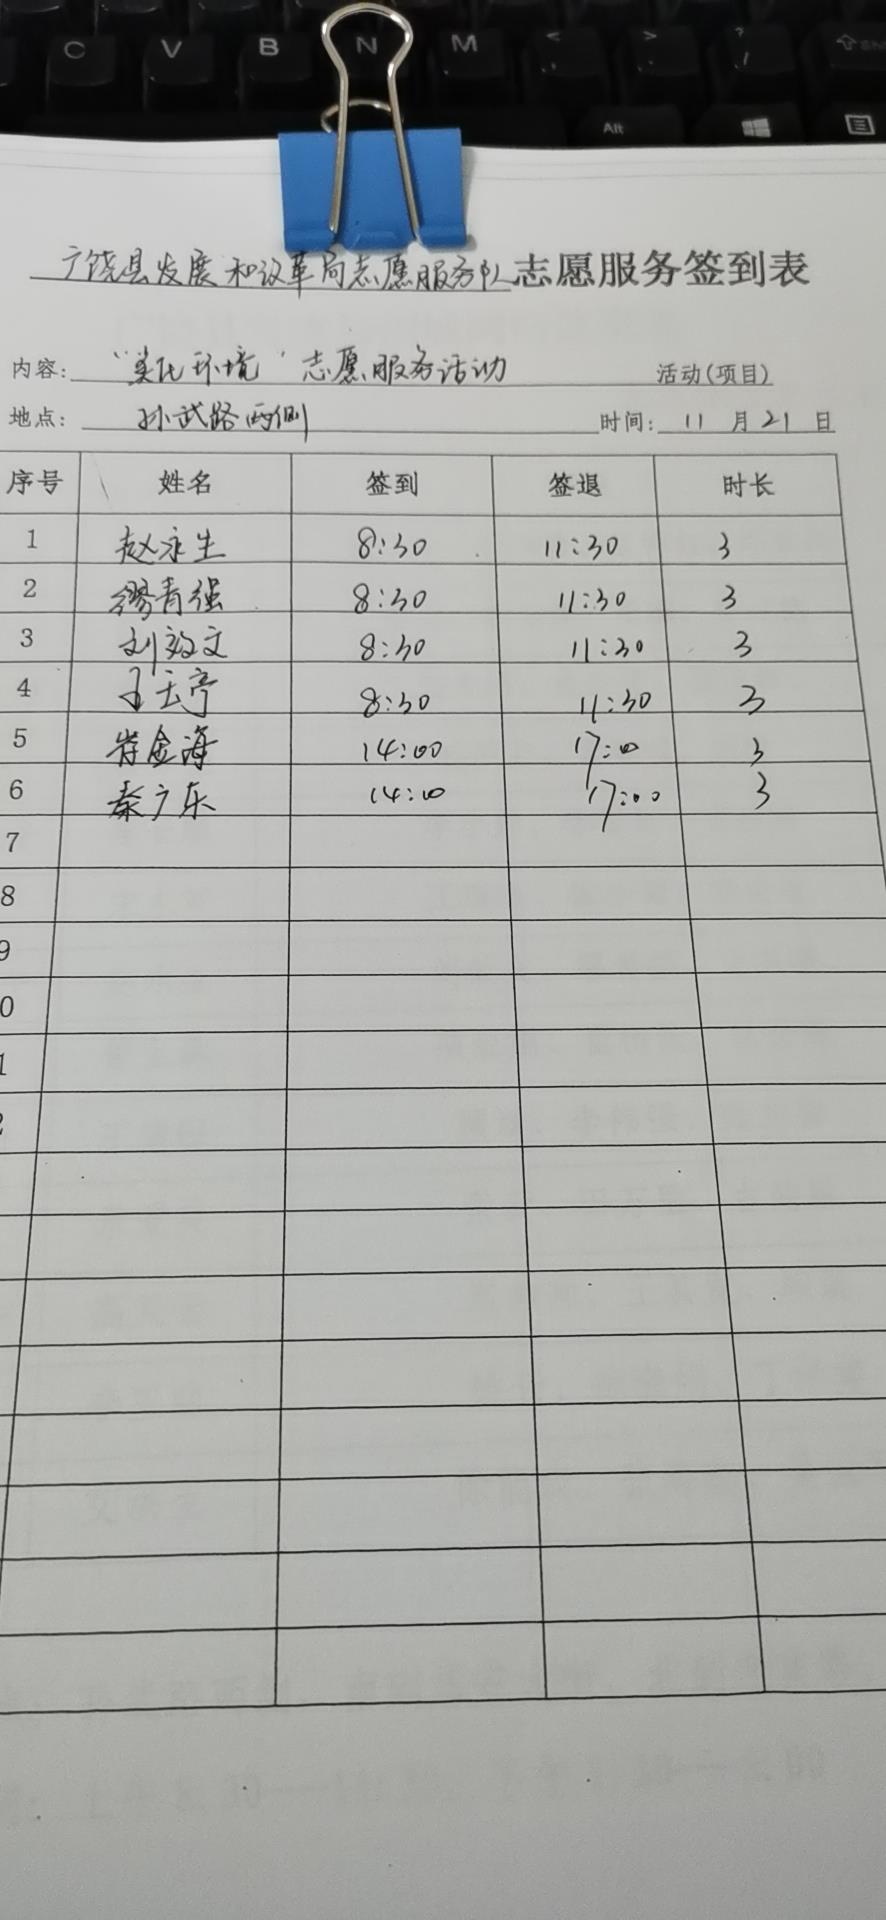 C V B N M < , > . ? /
Alt
广饶县发展和改革局志愿服务队志愿服务签到表
内容: "美化环境"志愿服务活动 活动(项目)
地点: 孙武路两侧 时间: 11 月 21 日
序号 姓名 签到 签退 时长
1 赵永生 8:30 11:30 3
2 缪青强 8:30 11:30 3
3 刘效文 8:30 11:30 3
4 王玉亭 8:30 11:30 3
5 金海 14:00 17:00 3
6 秦广东 14:00 17:00 3
7
8
9
0
1
2